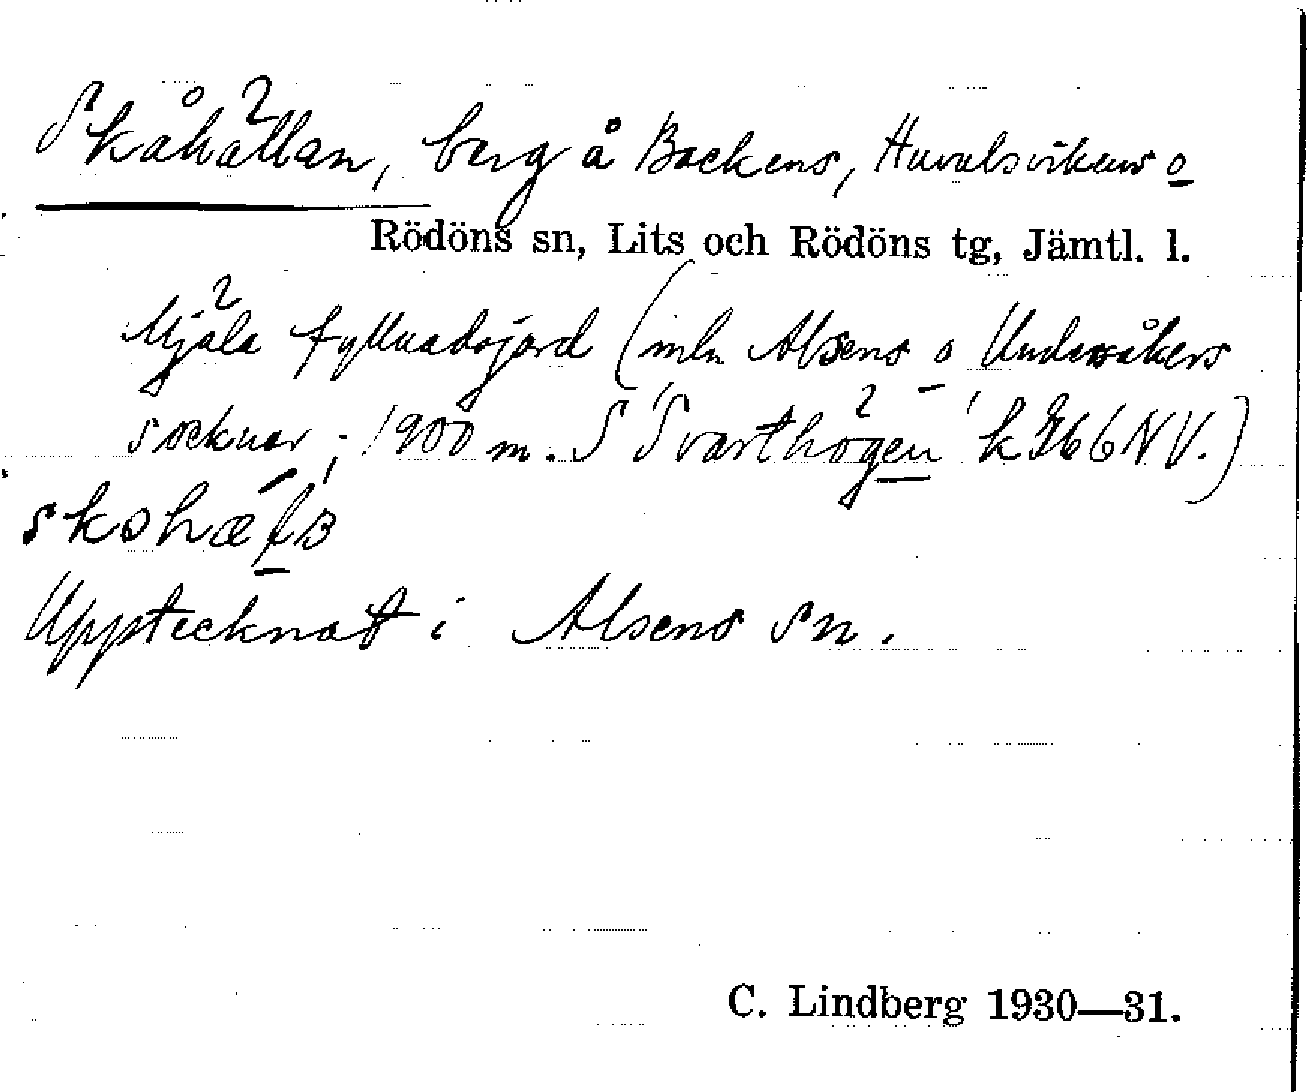 Skåhällan, berg å Backens, Huvulsvikens o
Rödöns sn, Lits och Rödöns tg, Jämtl. l.
Mjäla fyllnadsjord (mln Alsens o Undersåkers
socknar; 1900 m. S Svarthögen k 66 NV.)
Upptecknat i Alsens sn.
C. Lindberg 1930—31.